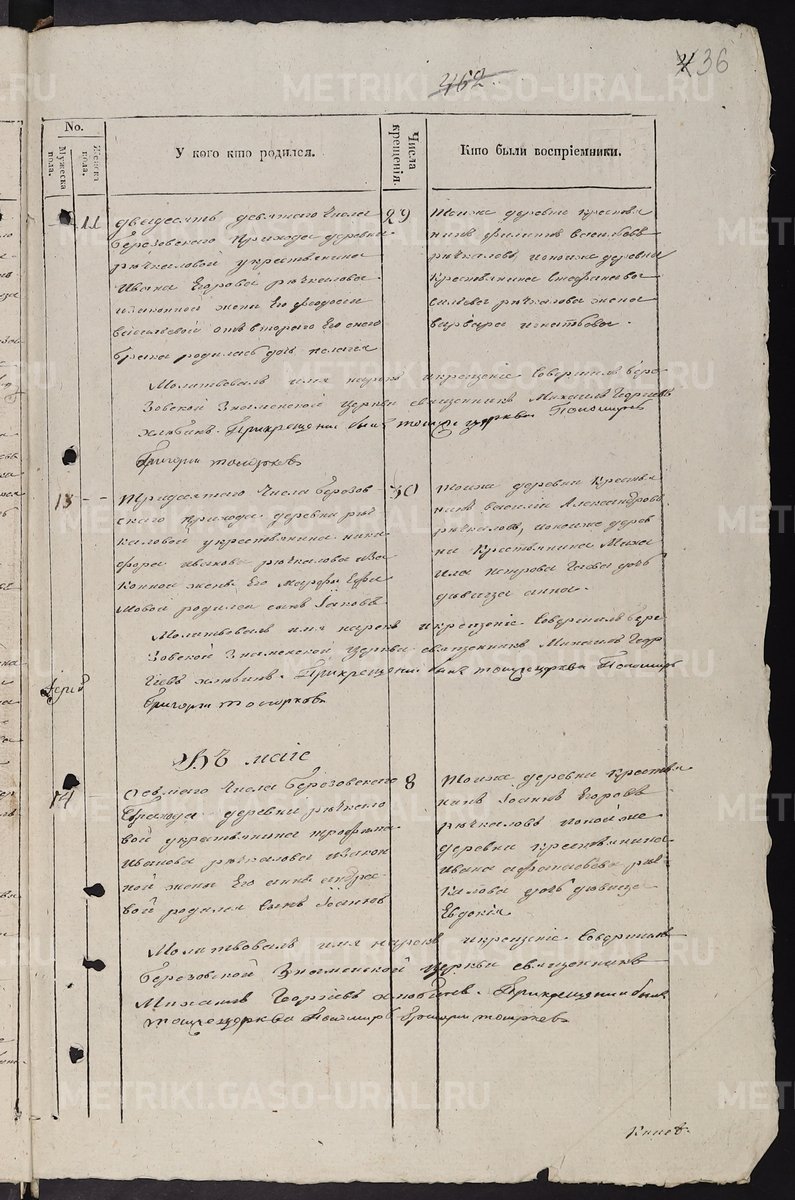 462
4 36
METRIKI.GASO-URAL.RU
No.
Мужеска пола.
Женска пола.
У кого кто родился.
Числа крещенія.
Кто были воспріемники.
11
двадесять девятаго числа
Березовскаго прихода деревни
рычкаловой укрестьянина
Ивана Егорова рычкалова
изаконной жены его Феодосіи
васильевой отъ втораго его
брака родилась дочь пелагея
29
тояже деревни крестья
нинъ Филиппъ
рычкаловъ, итояже деревни
Крестьянина Стефана ва
сильева рычкалова жена
варвара игнатьева.
Молитвовалъ имя нарекъ икрещеніе Совершилъ бере
зовской Знаменской церкви священникъ Михаилъ Георгіевъ
Прикрещеніи былъ тояже церкви Пономарь
Григорій
13
тридесятаго числа березов
скаго прихода деревни рыч
каловой укрестьянина ники
фора рычкалова иза
конной жены его Марфы Ефи
мовой родился сынъ Іаковъ
30
тояже деревни Крестья
нинъ василій Александровъ
рычкаловъ, итояже дерев
ни Крестьянина Миха
ила петрова дочь
девица анна.
Молитвовалъ имя нарекъ икрещеніе Совершилъ бере
зовской Знаменской церкви священникъ Михаилъ Геор
гіевъ Прикрещеніи былъ тояже церкви Пономарь
Григорій
Въ маіе
14
осьмаго числа березовскаго
Прихода деревни рычкало
вой укрестьянина трофима
Иванова рычкалова изакон
ной жены его анны андре
вой родился сынъ Іоаннъ
8
тояже деревни крестья
нинъ Іоаннъ Егоровъ
рычкаловъ итойже
деревни крестьянина
ивана рыч
калова дочь девица
Евдокія
Молитвовалъ имя нарекъ икрещеніе Совершилъ
березовской Знаменской церкви священникъ
Михаилъ Георгіевъ Прикрещеніи былъ
тояже церкви Пономарь Григорій